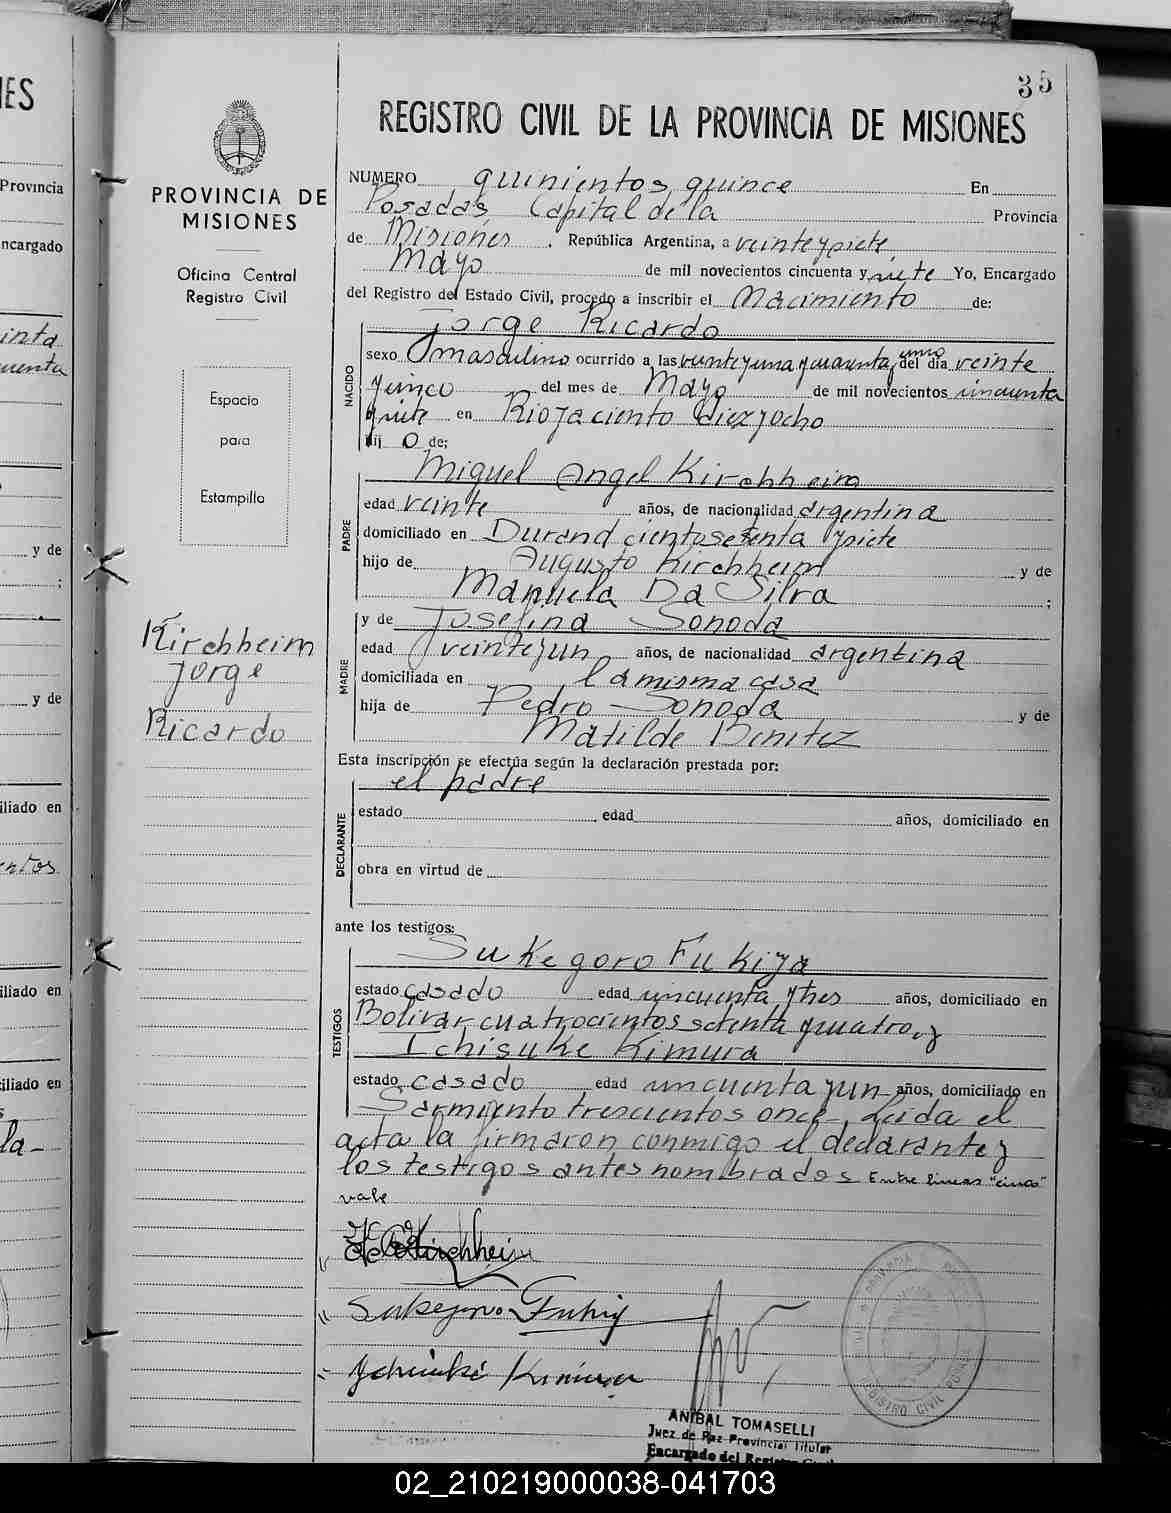 IES
Provincia
ncargado
inta
uenta
y de
;
y de
iliado en
entos
iliado en
iliado en
la-
PROVINCIA DE
MISIONES
Oficina Central
Registro Civil
Espacio
para
Estampilla
Kirchheim
Jorge
Ricardo
35
REGISTRO CIVIL DE LA PROVINCIA DE MISIONES
NUMERO quinientos quince En
Posadas, Capital de la Provincia
de Misiones . República Argentina, a veinteysiete
Mayo de mil novecientos cincuenta y siete Yo, Encargado
del Registro del Estado Civil, procedo a inscribir el Nacimiento de:
Jorge Ricardo
NACIDO
sexo masculino ocurrido a las veinteyuna y cuarenta y cinco del día veinte
y cinco del mes de Mayo de mil novecientos cincuenta
y siete en Rioja ciento diez y ocho
hij o de;
Miguel Angel Kirchheim
PADRE
edad veinte años, de nacionalidad argentina
domiciliado en Durand ciento setenta y siete
hijo de Augusto Kirchheim y de
Manuela Da Silva ;
y de Josefina Sonoda
MADRE
edad veinteyun años, de nacionalidad argentina
domiciliada en la misma casa
hija de Pedro Sonoda y de
Matilde Benitez
Esta inscripción se efectúa según la declaración prestada por:
el padre
DECLARANTE
estado edad años, domiciliado en
obra en virtud de
ante los testigos:
Sukegoro Fukiya
TESTIGOS
estado casado edad cincuenta y tres años, domiciliado en
Bolivar cuatrocientos setenta y cuatro, y
Ichisuke Kimura
estado casado edad cincuenta y un años, domiciliado en
Sarmiento trescientos once. Leida el
acta la firmaron conmigo el declarante y
los testigos antes nombrados Entre lineas "cinco"
vale
Kirchheim
Sukegoro Fukiy
Ychisuké Kimura
REGISTRO CIVIL
ANIBAL TOMASELLI
Juez de Paz Provincial Titular
Encargado del Registro Civil
02_210219000038-041703